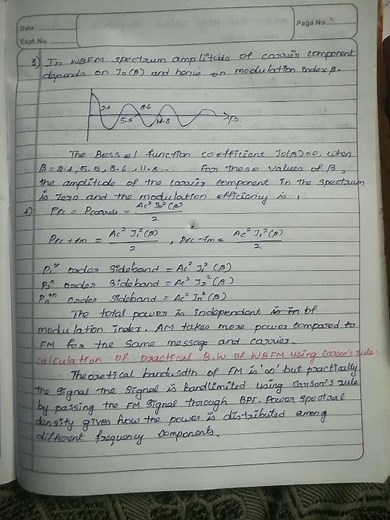 Date:
Expt. No.
Page No.
3) In WBFM spectrum amplitude of carrier component
depends on J₀(β) and hence on modulation index β.
2.4
5.5
8.6
11.8
β
The Bessel function coefficient J₀(β)=0, when
β=2.4, 5.5, 8.6, 11.8... For these values of β,
the amplitude of the carrier component in the spectrum
is zero and the modulation efficiency is 1.
4) Pfc = Pcarrier = Ac² J₀²(β) / 2
Pfc+fm = Ac² J₁²(β) / 2 , Pfc-fm = Ac² J₁²(β) / 2
P1st order Sideband = Ac² J₁² (β)
P2n order Sideband = Ac² J₂² (β)
Pnth order Sideband = Ac² Jn² (β)
The total power is independent of
modulation index. AM takes more power compared to
FM for the same message and carrier.
calculation of practical B.W of WBFM using Carson's rule:
Theoretical bandwidth of FM is '∞' but practically
the signal the signal is bandlimited using Carson's rule
by passing the FM signal through BPF. Power spectral
density gives how the power is distributed among
different frequency components.